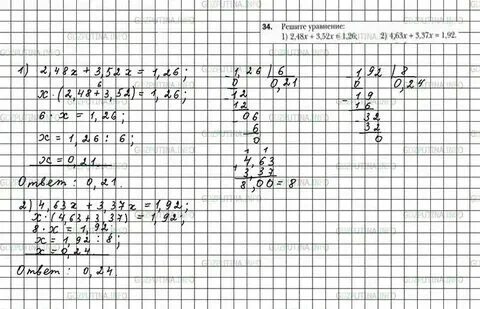 34. Решите уравнение:
1) 2,48x + 3,52x = 1,26; 2) 4,63x + 3,37x = 1,92.
1) 2,48x + 3,52x = 1,26;
6
x·(2,48+3,52) = 1,26;
6·x = 1,26;
x = 1,26 : 6;
x = 0,21.
Ответ: 0,21.
2) 4,63x + 3,37x = 1,92;
x·(4,63+3,37) = 1,92;
8·x = 1,92;
x = 1,92 : 8;
x = 0,24
Ответ: 0,24.
- 1,26 | 6
0 0,21
- 12
12
- 06
6
0
1 1
+ 4,63
3,37
8,00 = 8
- 1,92 | 8
0 0,24
- 19
16
- 32
32
0
GDZPUTINA.INFO